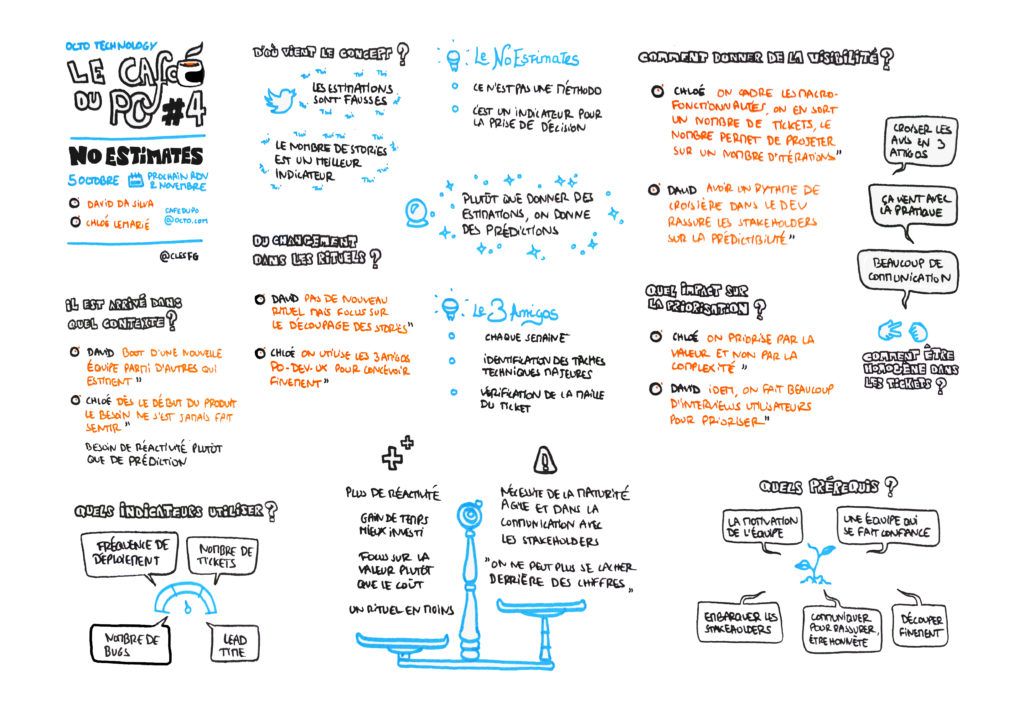 OCTO TECHNOLOGY
LE CAFÉ
DU PO
#4
NO ESTIMATES
5 OCTOBRE
PROCHAIN RDV
2 NOVEMBRE
DAVID DA SILVA
CHLOÉ LEMARIÉ
CAFEDUPO
@OCTO.COM
@CLESFG
D'OÙ VIENT LE CONCEPT ?
LES ESTIMATIONS
SONT FAUSSES
LE NOMBRE DE STORIES
EST UN MEILLEUR
INDICATEUR
LE NOESTIMATES
CE N'EST PAS UNE MÉTHODO
C'EST UN INDICATEUR POUR
LA PRISE DE DÉCISION
PLUTÔT QUE DONNER DES
ESTIMATIONS, ON DONNE
DES PRÉDICTIONS
COMMENT DONNER DE LA VISIBILITÉ ?
CHLOÉ ON CADRE LES MACRO-
FONCTIONNALITÉS, ON EN SORT
UN NOMBRE DE TICKETS, LE
NOMBRE PERMET DE PROJETER
SUR UN NOMBRE D'ITÉRATIONS"
DAVID AVOIR UN RYTHME DE
CROISIÈRE DANS LE DEV
RASSURE LES STAKEHOLDERS
SUR LA PRÉDICTIBILITÉ"
CROISER LES
AVIS EN 3
AMIGOS
ÇA VIENT AVEC
LA PRATIQUE
BEAUCOUP DE
COMMUNICATION
COMMENT ÊTRE
HOMOGÈNE DANS
LES TICKETS ?
IL EST ARRIVÉ DANS
QUEL CONTEXTE ?
DAVID BOOT D'UNE NOUVELLE
ÉQUIPE PARMI D'AUTRES QUI
ESTIMENT"
CHLOÉ DÈS LE DÉBUT DU PRODUIT
LE BESOIN NE S'EST JAMAIS FAIT
SENTIR"
BESOIN DE RÉACTIVITÉ PLUTÔT
QUE DE PRÉDICTION
DU CHANGEMENT
DANS LES RITUELS ?
DAVID PAS DE NOUVEAU
RITUEL MAIS FOCUS SUR
LE DÉCOUPAGE DES STORIES"
CHLOÉ ON UTILISE LES 3 AMIGOS
PO-DEV-UX POUR CONCEVOIR
FINEMENT"
LE 3 AMIGOS
CHAQUE SEMAINE
IDENTIFICATION DES TÂCHES
TECHNIQUES MAJEURES
VÉRIFICATION DE LA MAILLE
DU TICKET
QUEL IMPACT SUR
LA PRIORISATION ?
CHLOÉ ON PRIORISE PAR LA
VALEUR ET NON PAR LA
COMPLEXITÉ"
DAVID IDEM, ON FAIT BEAUCOUP
D'INTERVIEWS UTILISATEURS
POUR PRIORISER"
QUELS INDICATEURS UTILISER ?
FRÉQUENCE DE
DÉPLOIEMENT
NOMBRE DE
TICKETS
NOMBRE DE
BUGS
LEAD
TIME
PLUS DE RÉACTIVITÉ
GAIN DE TEMPS
MIEUX INVESTI
FOCUS SUR LA
VALEUR PLUTÔT
QUE LE COÛT
UN RITUEL EN MOINS
NÉCESSITE DE LA MATURITÉ
AGILE ET DANS LA
COMMUNICATION AVEC
LES STAKEHOLDERS
"ON NE PEUT PLUS SE CACHER
DERRIÈRE DES CHIFFRES"
QUELS PRÉREQUIS ?
LA MOTIVATION
DE L'ÉQUIPE
UNE ÉQUIPE QUI
SE FAIT CONFIANCE
EMBARQUER LES
STAKEHOLDERS
COMMUNIQUER
POUR RASSURER,
ÊTRE HONNÊTE
DÉCOUPER
FINEMENT